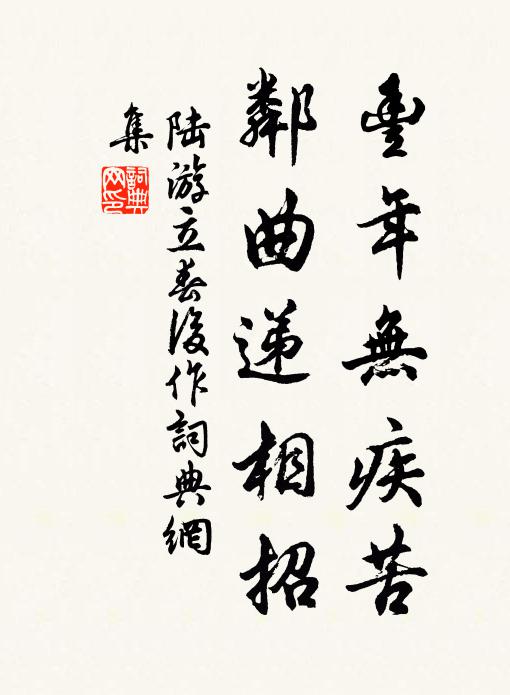 豐年無疾苦
鄰曲递相招
陆游立春後作詞典網
集
詞典
网印